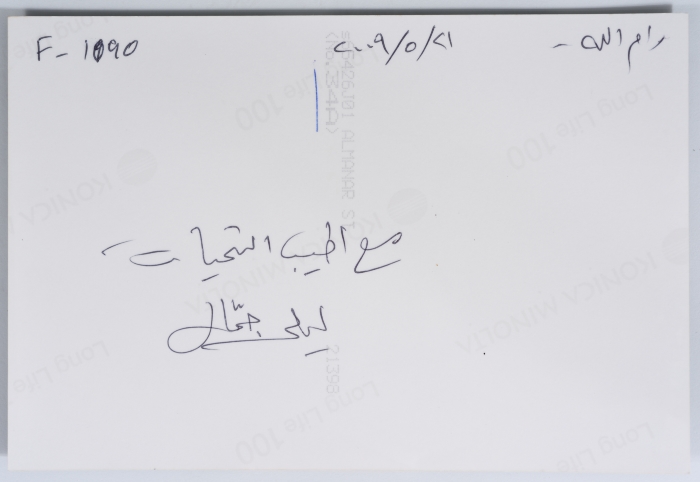 رام الله - ٢٠٠٩/٥/٢١ F-1090
مع اطيب التحيات
ليلى جمّال
KONICA MINOLTA
Long Life 100